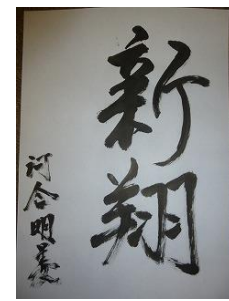 新翔
河合明美